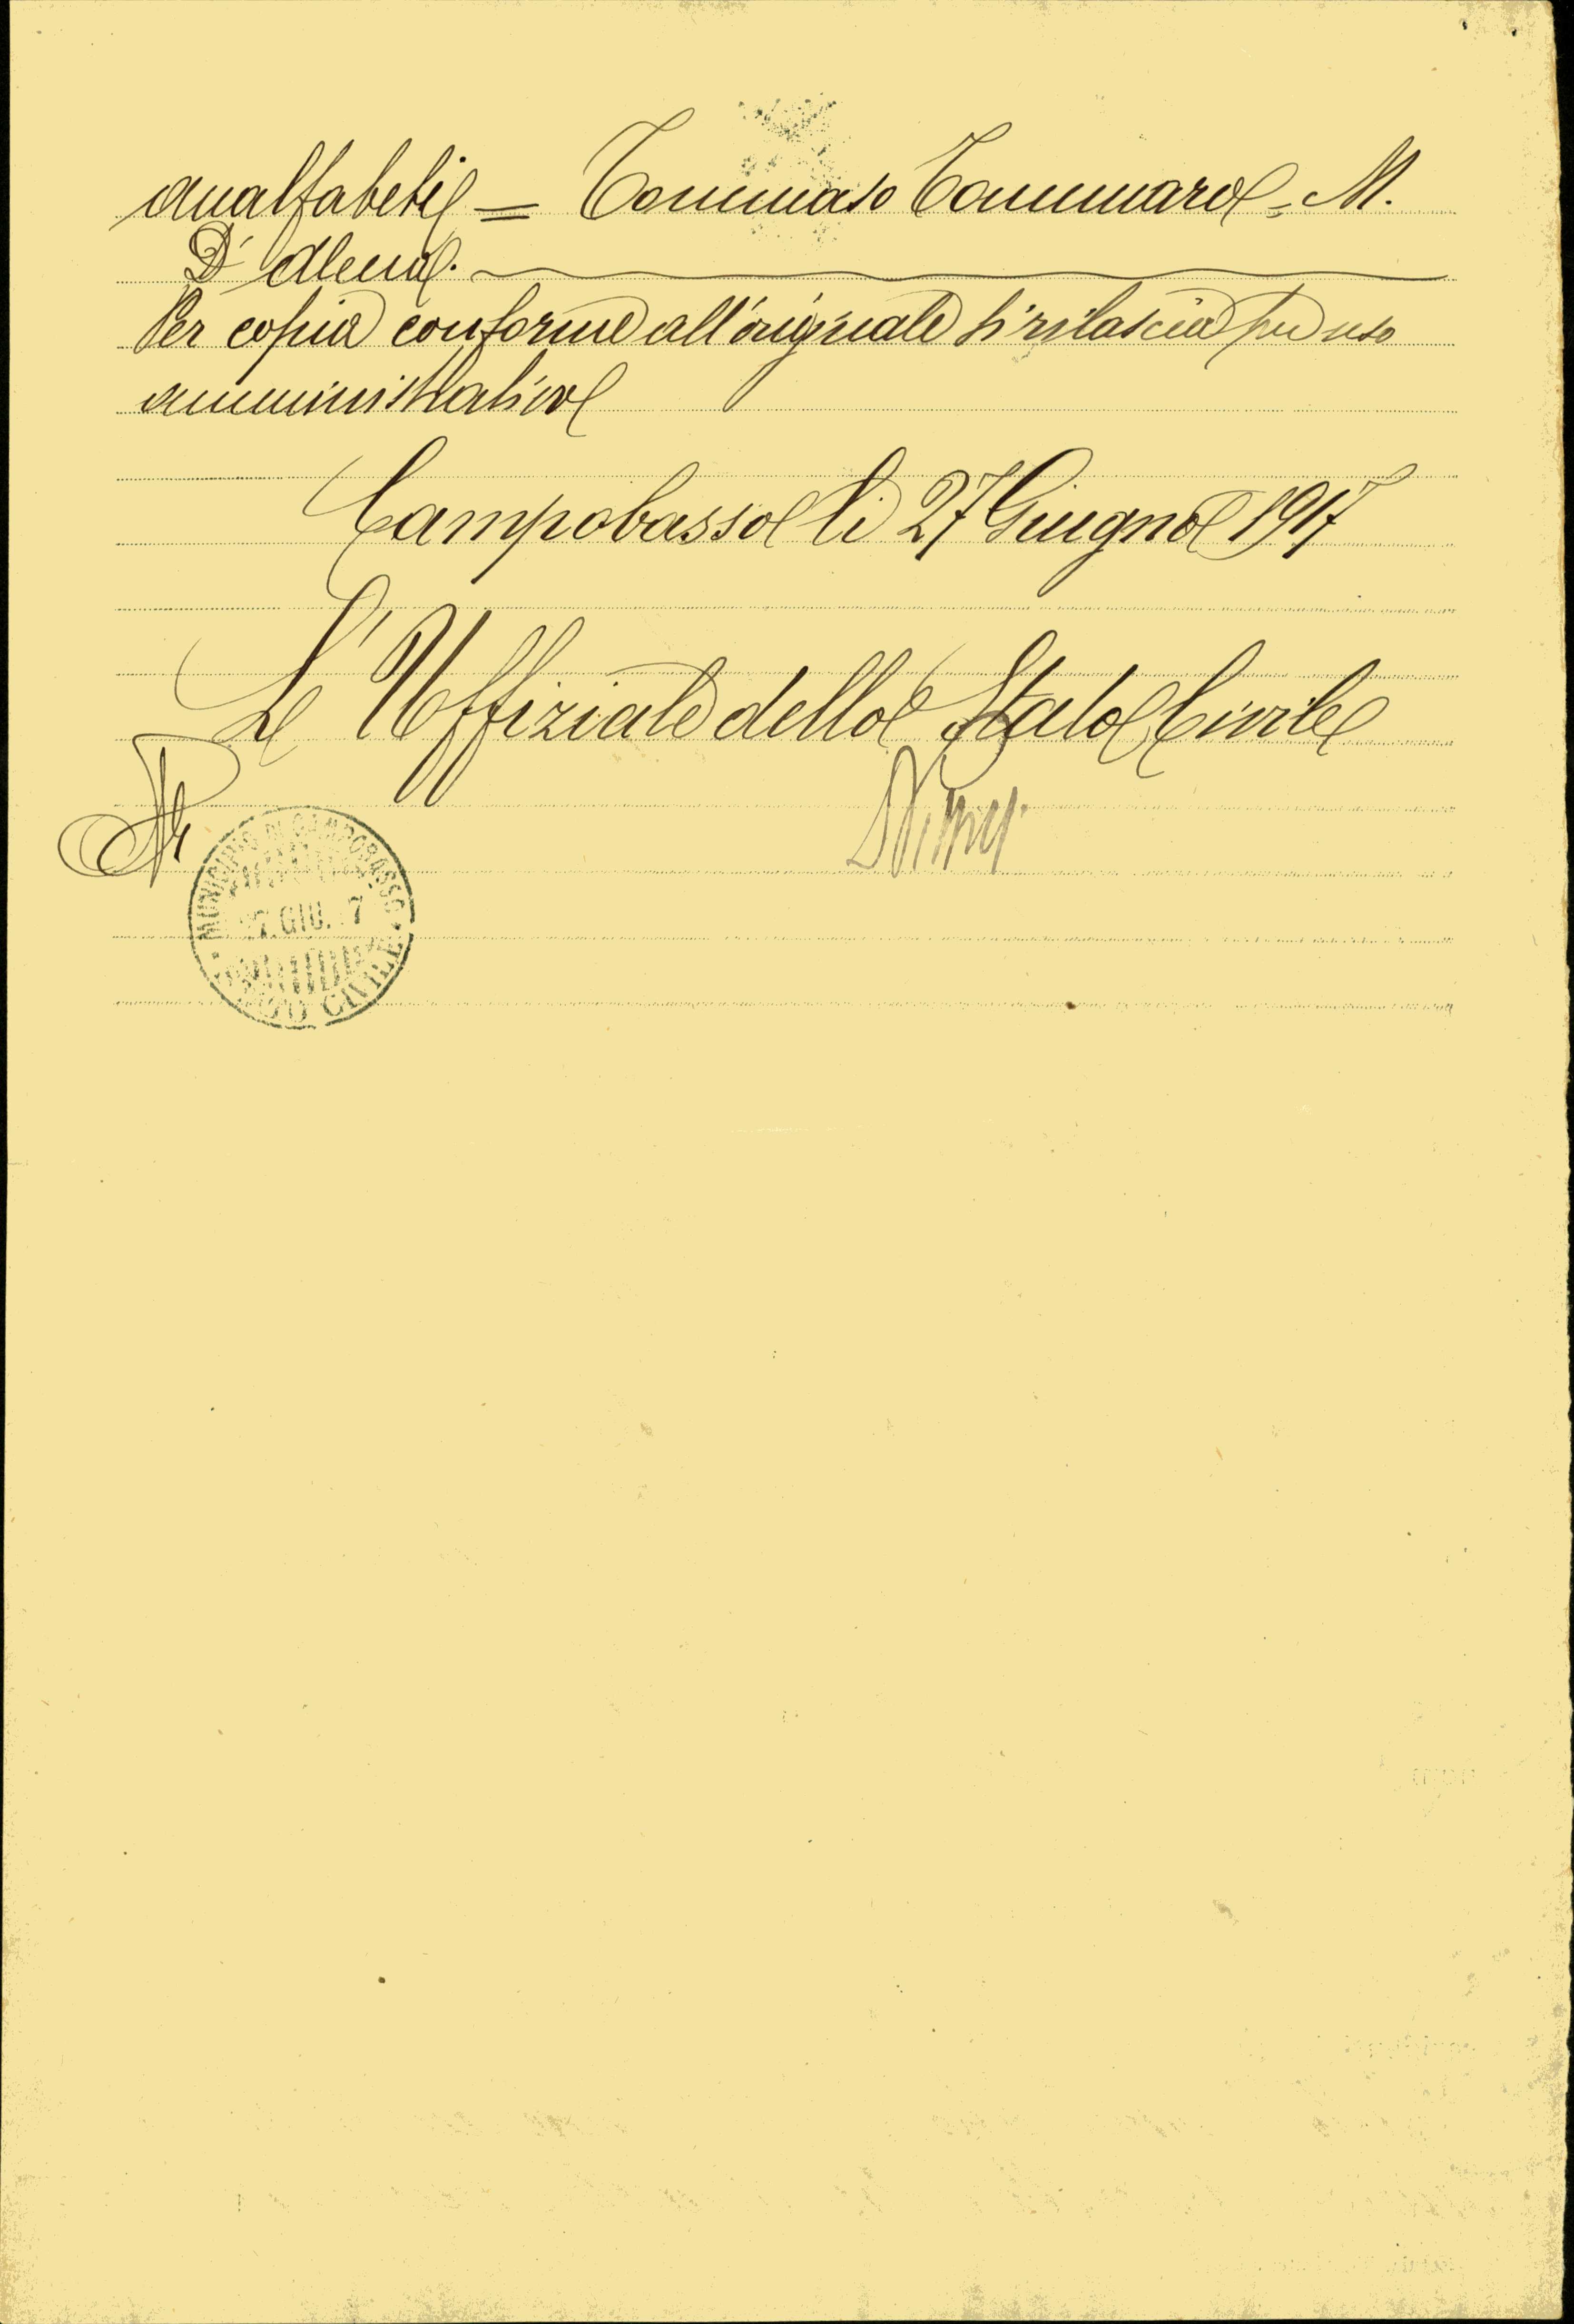 analfabeti = Tommaso Tammaro = M.
D'Alena.
Per copia conforme all'originale si rilascia per uso
amministrativo
Campobasso li 27 Giugno 1917
L'Uffiziale dello Stato Civile
MUNICIPIO DI CAMPOBASSO
27. GIU. 17
CIVILE